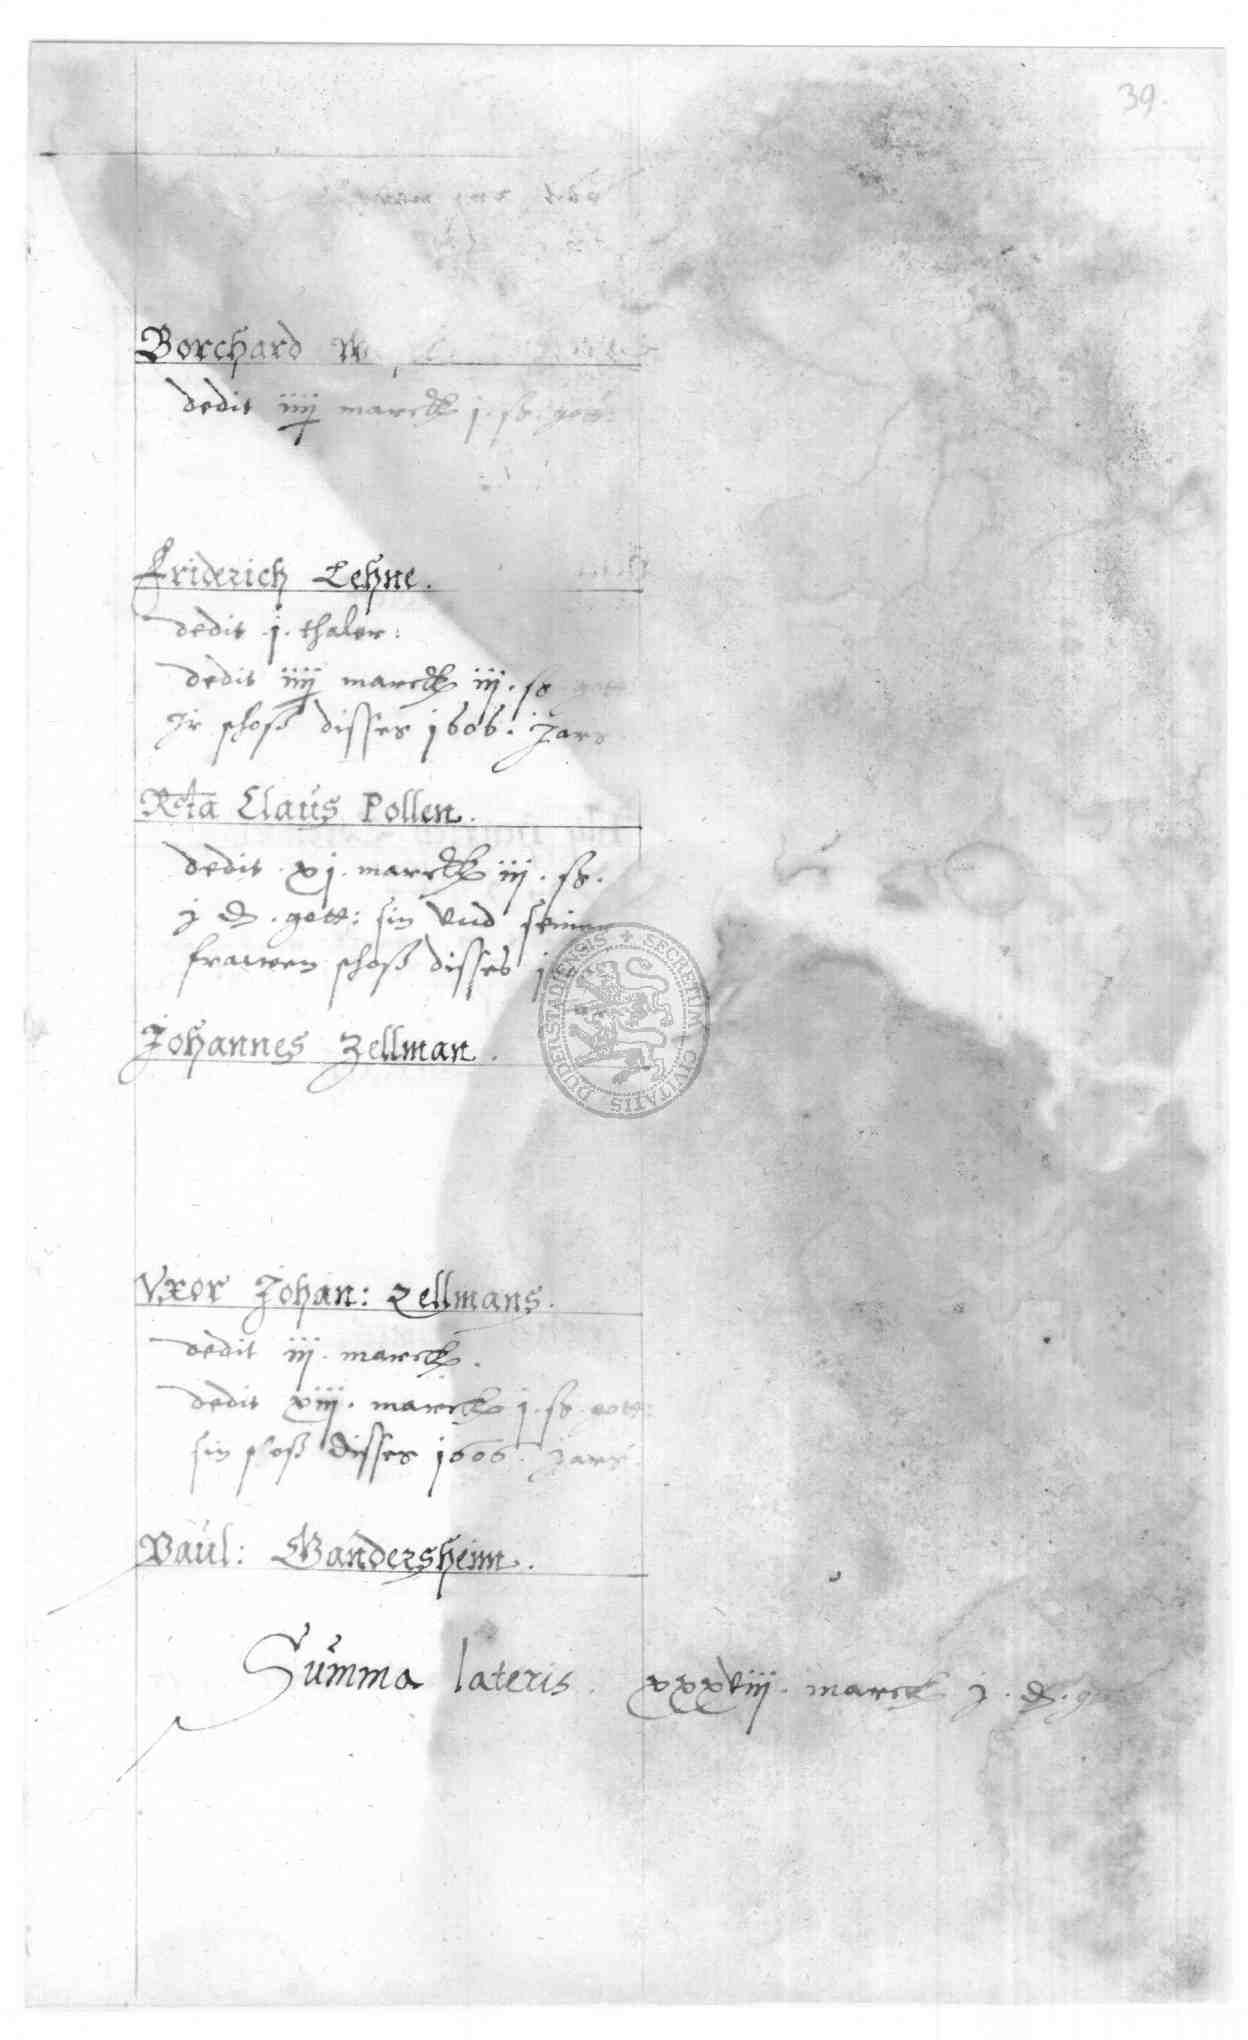 39.
Borchard
dedit iiij marck j. ß. gott:
Friderich Lehne.
dedit j. thaler:
dedit iiij marck iij. ß. gott
Jr schoß disses 1606. Jars
Rcta Claus Pollen.
dedit xj. marck iij. ß.
j ₰. gott: sin vnd seiner
frauwen schoß disses
Johannes Zellman.
SECRETUM CIVITATIS DUDERSTADIENSIS
Vxor Johan: Zellmans.
dedit iij. marck.
dedit xiij. marck j. ß. gott:
sin schoß disses 1606. Jars
Paul: Gandersheim.
Summa lateris. xxxviij. marck j. ₰.